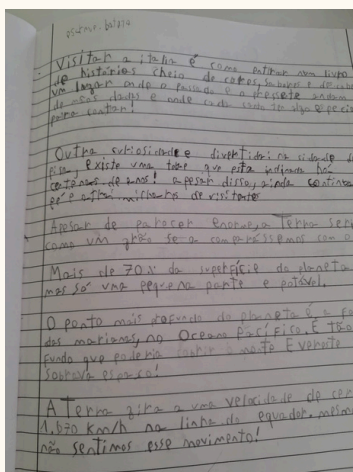 Visitar a italia é como entrar num livro
de histórias cheio de cores, sabores e
um lugar onde o passado e o presente andam
de mãos dadas e onde cada canto tem algo especial
para contar!
Outra curiosidade divertida: na cidade de
Pisa, existe uma torre que esta inclinada há
centenas de anos! apesar disso, ainda continua
pé e atrai milhares de visitantes
Apesar de parecer enorme, a Terra seria
como um grão se a comparássemos com o
Mais de 70% da superfísie do planeta
mas só uma pequena parte e potável.
O ponto mais profundo do planeta é a
das marianas, no Oceano Pacífico. É tão
fundo que poderia o monte Evereste
sobrava espaço!
A Terra gira a uma velocidade de
1.670 km/h na linha do equador. mesmo
não sentimos esse movimento!